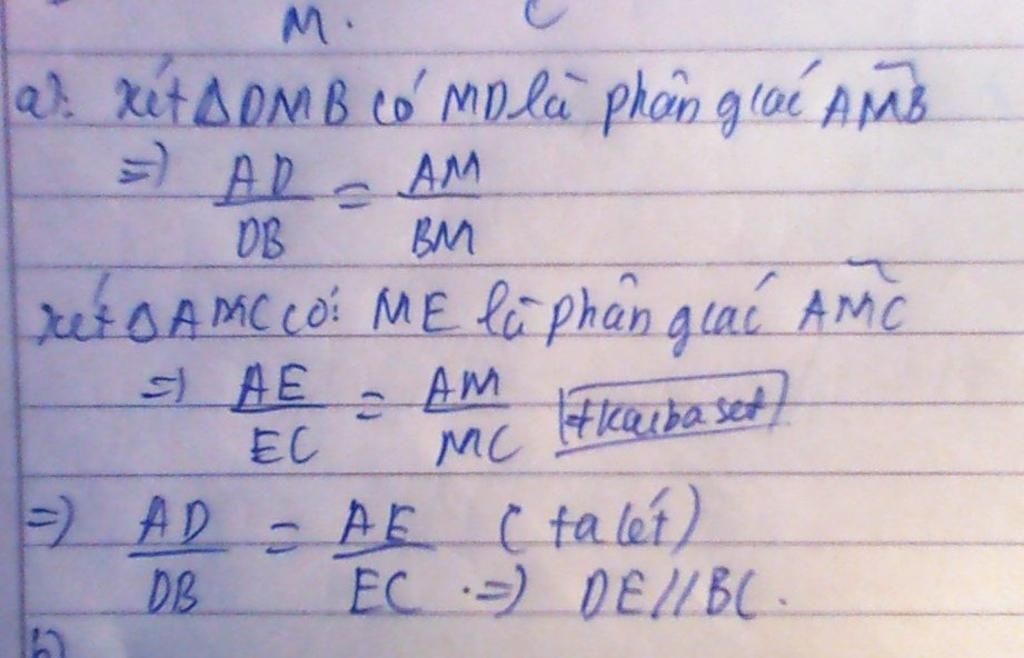 M. C
a): xét ΔDMB có MD là phân giác AM̂B
=> AD/DB = AM/BM
xét ΔAMC có: ME là phân giác AM̂C
=> AE/EC = AM/MC +kaibaset
=> AD/DB = AE/EC (talét) => DE//BC.
b)